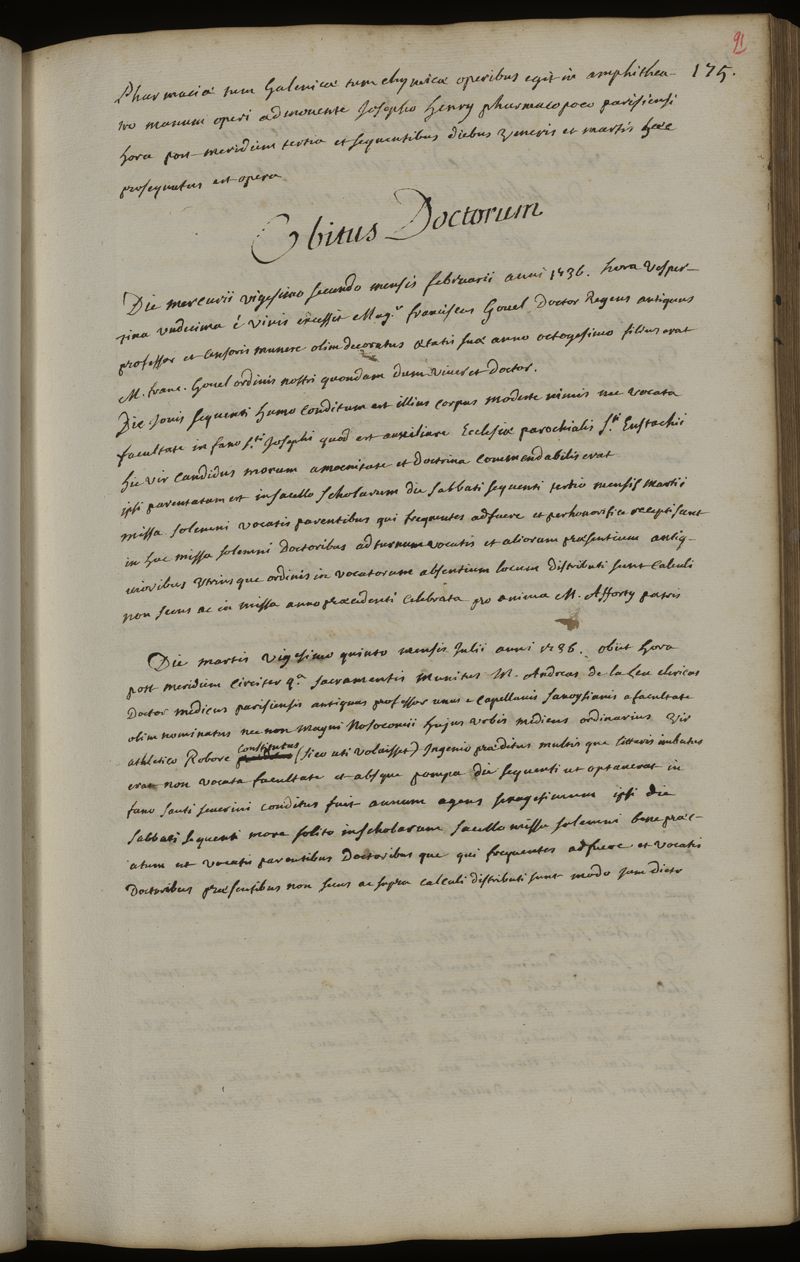 91
175.
Pharmaciæ tum Galenicæ tum chymicæ operibus egit in amphithea-
tro manum operi admovente Josepho Henry pharmacopoeo parisiensi
hora post meridiem tertia et sequentibus diebus veneris et martis hæc
prosequutus est opera
Obitus Doctorum
Die mercurii vigesimo secundo mensis februarii anni 1736. hora vesper-
tina undecima é vivis excessit Mag.r franciscus Gouel Doctor Regens antiquus
professor et censoris munere olim decoratus ætatis suæ anno octogesimo filius erat
M. franc. Gouel ordinis nostri quondam dum viveret doctor.
Die Jovis sequenti humo conditum est illius corpus modeste nimis nec vocata
facultate in fano S.ti Josephi quod est auxiliare Ecclesiæ parochialis S.ti Eustachii
hic vir candidus morum amoenitate et doctrina commendabilis erat
ipsi parentatum est in sacello scholarum die sabbati sequenti tertio mensis martii
missa solemni vocatis parentibus qui frequentes adfuere et perhonorifice recepti sunt
in hac missa solemni doctoribus ad turnum vocatis et aliorum præsentium antiq-
uioribus utriusque ordinis in vocatorum absentium locum distributi sunt calculi
non secus ac in missa anno præcedenti celebrata pro anima M. Afforty patris
Die martis vigesimo quinto mensis Julii anni 1736. obiit hora
post meridiem circiter q.a sacramentis munitus M. Andreas de la Leu clericus
Doctor medicus parisiensis antiquus professor unus e capellanis fanogsianis a facultate
olim nominatus nec non magni Nosocomii hujus urbis medicus ordinarius vir
athletico Robore constitutus (si eo uti voluisset) Ingenio præditus multisque litteris imbutus
erat non vocata facultate et absque pompa die sequenti ut optaverat in
fano sancti severini conditus fuit annum agens sexagesimum ipsi die
sabbati sequenti more solito in scholarum sacello missa solemni bene prec-
atum est vocatis parentibus Doctoribusque qui frequentes adfuere et vocatis
Doctoribus præsentibus non secus ac supra calculi distributi sunt modo jam dicto